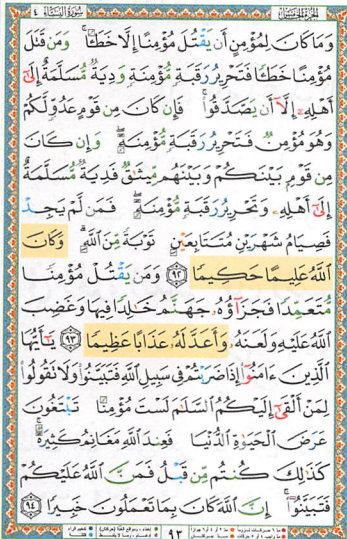 الجزء الخامس سورة النساء ٤
وَمَا كَانَ لِمُؤْمِنٍ أَن يَقْتُلَ مُؤْمِنًا إِلَّا خَطَـًٔا ۚ وَمَن قَتَلَ
مُؤْمِنًا خَطَـًٔا فَتَحْرِيرُ رَقَبَةٍ مُّؤْمِنَةٍ وَدِيَةٌ مُّسَلَّمَةٌ إِلَىٰٓ
أَهْلِهِۦٓ إِلَّآ أَن يَصَّدَّقُوا۟ ۚ فَإِن كَانَ مِن قَوْمٍ عَدُوٍّ لَّكُمْ
وَهُوَ مُؤْمِنٌ فَتَحْرِيرُ رَقَبَةٍ مُّؤْمِنَةٍ ۖ وَإِن كَانَ
مِن قَوْمٍۭ بَيْنَكُمْ وَبَيْنَهُم مِّيثَـٰقٌ فَدِيَةٌ مُّسَلَّمَةٌ
إِلَىٰٓ أَهْلِهِۦ وَتَحْرِيرُ رَقَبَةٍ مُّؤْمِنَةٍ ۖ فَمَن لَّمْ يَجِدْ
فَصِيَامُ شَهْرَيْنِ مُتَتَابِعَيْنِ تَوْبَةً مِّنَ ٱللَّهِ ۗ وَكَانَ
ٱللَّهُ عَلِيمًا حَكِيمًا ٩٢ وَمَن يَقْتُلْ مُؤْمِنًا
مُّتَعَمِّدًا فَجَزَآؤُهُۥ جَهَنَّمُ خَـٰلِدًا فِيهَا وَغَضِبَ
ٱللَّهُ عَلَيْهِ وَلَعَنَهُۥ وَأَعَدَّ لَهُۥ عَذَابًا عَظِيمًا ٩٣ يَـٰٓأَيُّهَا
ٱلَّذِينَ ءَامَنُوٓا۟ إِذَا ضَرَبْتُمْ فِى سَبِيلِ ٱللَّهِ فَتَبَيَّنُوا۟ وَلَا تَقُولُوا۟
لِمَنْ أَلْقَىٰٓ إِلَيْكُمُ ٱلسَّلَـٰمَ لَسْتَ مُؤْمِنًا تَبْتَغُونَ
عَرَضَ ٱلْحَيَوٰةِ ٱلدُّنْيَا فَعِندَ ٱللَّهِ مَغَانِمُ كَثِيرَةٌ ۚ
كَذَٰلِكَ كُنتُم مِّن قَبْلُ فَمَنَّ ٱللَّهُ عَلَيْكُمْ
فَتَبَيَّنُوٓا۟ ۚ إِنَّ ٱللَّهَ كَانَ بِمَا تَعْمَلُونَ خَبِيرًا ٩٤
٩٣